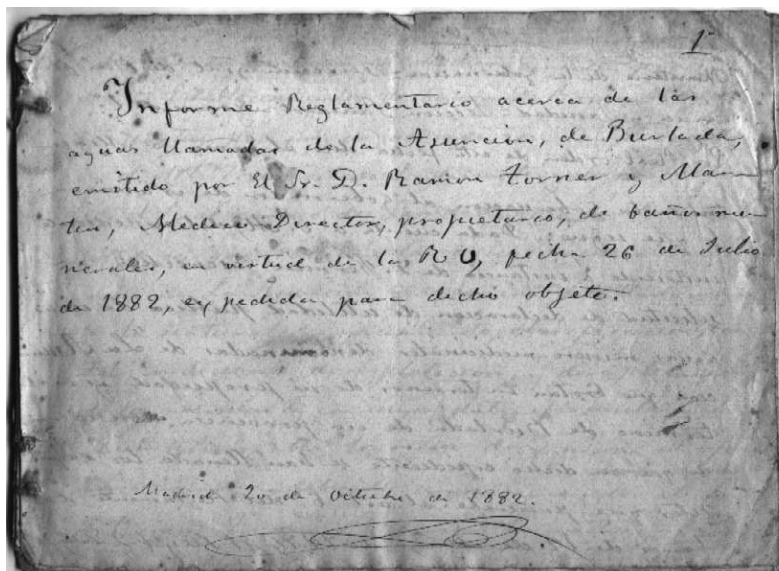 1
Informe Reglamentario acerca de las
aguas llamadas de la Asuncion, de Burlada,
emitido por El Sr. D. Ramon Torner y Mar-
tin, Medico Director, propietario, de baños mi-
nerales, en virtud de la R O, fecha 26 de Julio
de 1882, expedida para dicho objeto.
Madrid 20 de Octubre de 1882.